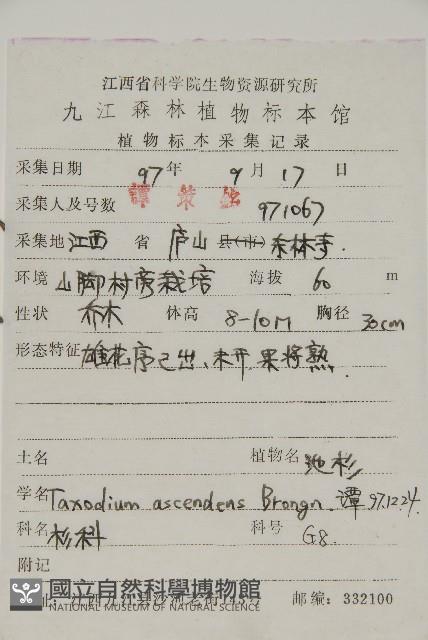 江西省科学院生物资源研究所
九江森林植物标本馆
植物标本采集记录
采集日期 97年 9月 17日
采集人及号数 譚策銘 971067
采集地 江西 省 庐山 县(市) 东林寺.
环境 山脚村旁栽培 海拔 60 m
性状 乔木 体高 8-10M 胸径 30cm
形态特征 雄花序已出、未开 果将熟.
土名 植物名 池杉
学名 Taxodium ascendens Brongn. 譚 97.12.24.
科名 杉科 科号 G8
附记
國立自然科學博物館
NATIONAL MUSEUM OF NATURAL SCIENCE
江西九江县沙河老街145号 邮编: 332100